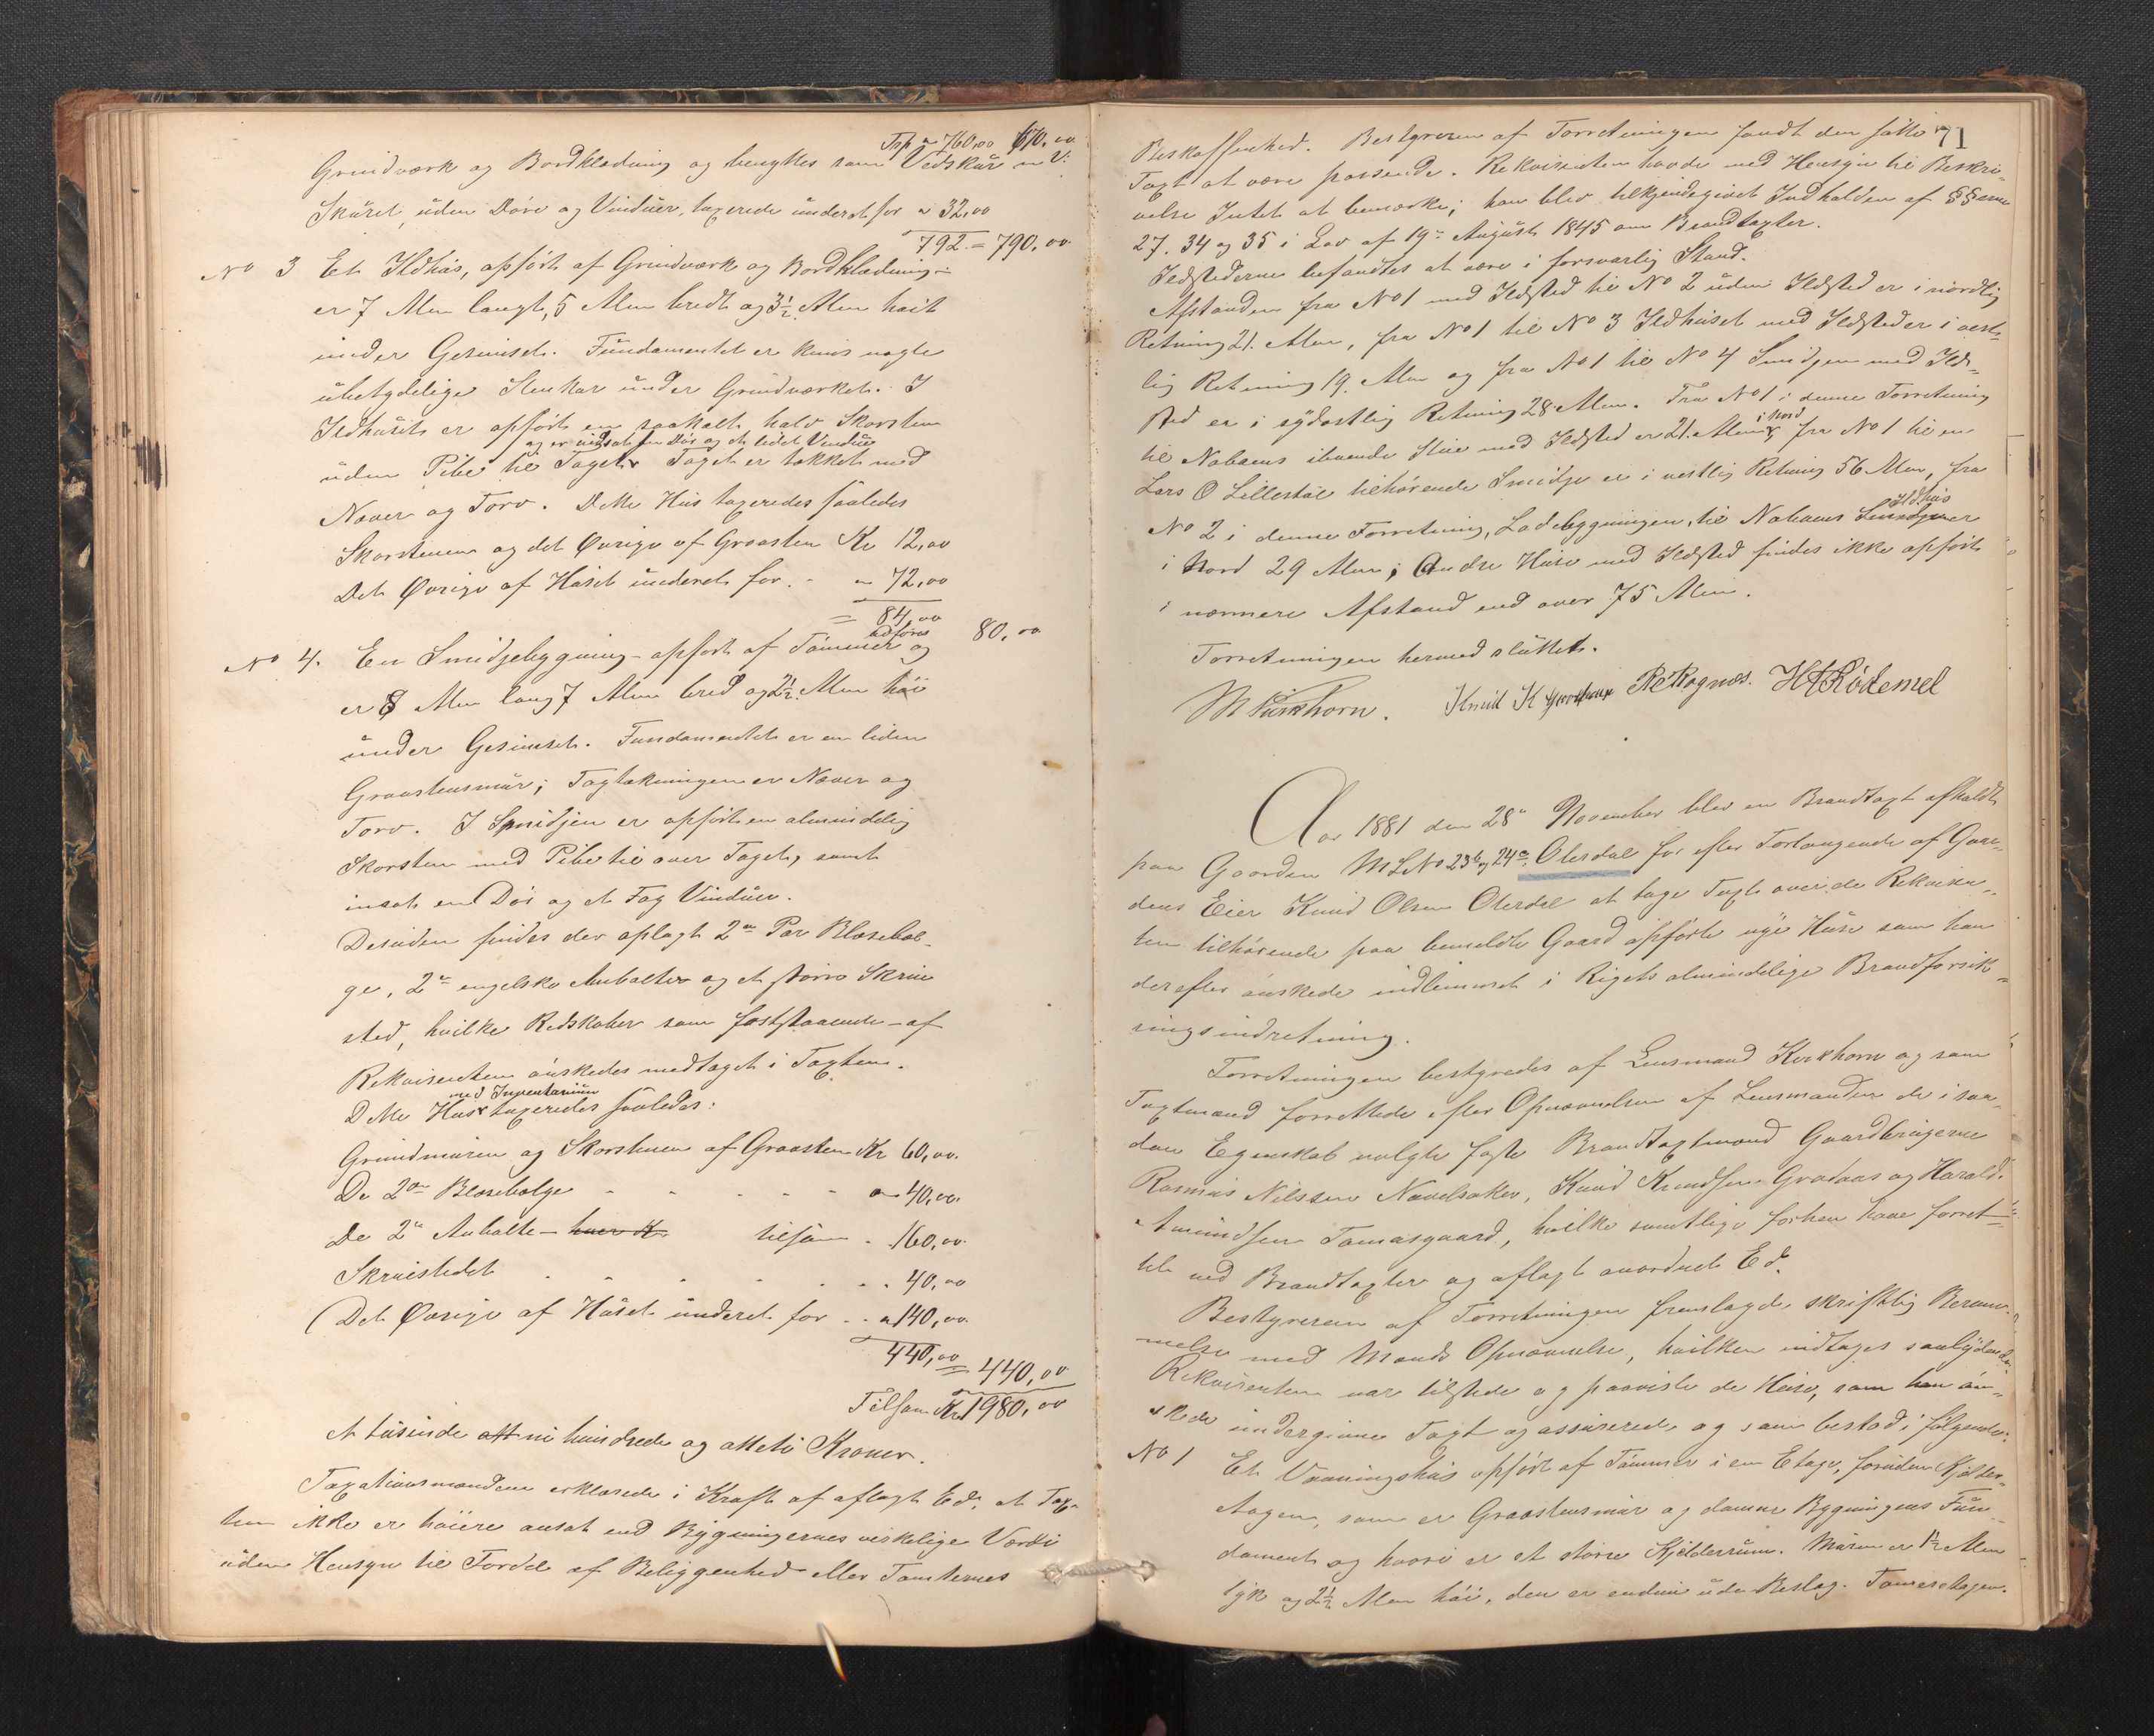 Trp „ 760,00 670,00
Grindværk og Bordklædning og benyttes som Vedskur
Skuret, uden Døre og Vinduer, taxerede underet for „ 32,00
792 = 790,00
No 3 Et Ildhus, opført af Grindværk og Bordklædning
er 7 Alen langt, 5 Alen bredt og 3½ Alen høit
under Gesimset. Fundamentet er kuns nogle
ubetydelige Stenkar under Grindværket. I
Ildhuset er opført en saakalt halv Skorsten
og er indsat en Dør og et lidet Vindue
uden Pibe til Taget. Taget er tækket med
Næver og Torv. Dette Hus taxeredes saaledes
Skorstenen og det Øvrige af Graasten Kr 12,00
Det Øvrige af Huset underet for „ 72,00
= 84,00
udføres 80,00
No 4. En Smidjebygning opført af Tømmer og
er 8 Alen lang 7 Alen bred og 2½ Alen høi
under Gesimset. Fundamentet er en liden
Graastensmur; Tagtækningen er Næver og
Torv. I Smidjen er opført en almindelig
Skorsten med Pibe til over Taget, samt
insat en Dør og et Fag Vinduer.
Desuden findes der oplagt 2de Par Blæsebæl-
ge, 2de engelske Ambolter og et større Skrue
sted, hvilke Redskaber som fastståaende af
Rekvirenten ønskedes medtaget i Taxten.
med Inventarium
Dette Hus taxeredes saaledes:
Grundmuren og Skorstenen af Graasten Kr 60,00.
De 2de Blæsebælge „ 40,00.
De 2de Ambolte – hver Kr. tilsam „ 160,00
Skruestedet „ 40,00
Det Øvrige af Huset underet for „ 140,00.
440,00 = 440,00
Tilsam Kr 1980,00
et tusinde ott ni hundrede og otteti Kroner.
Taxationsmændene erklærede i Kraft af aflagt Ed, at Tax-
ten ikke er høiere ansat end Bygningernes virkelige Værdi
uden Hensyn til Fordel af Beliggenhed eller Tomternes
71
Beskaffenhed. Bestyreren af Forretningen fandt den satte
Taxt at være passende. Rekvirenten havde med Hensyn til Beskri-
velse Intet at bemærke; han blev tilkjendegivet Indholden af §§erne
27. 34 og 35 i Lov af 19de August 1845 om Brandtaxter.
Ildstederne befandtes at være i forsvarlig Stand.
Afstanden fra No 1 med Ildsted til No 2 uden Ildsted er i nordlig
Retning 21. Alen, fra No 1 til No 3 Ildhuset med Ildsted er i vest-
lig Retning 19. Alen og fra No 1 til No 4 Smidjen med Ild-
sted er i sydostlig Retning 28 Alen. Fra No 1 i denne Forretning
til Naboens iboende Stue med Ildsted er 21. Alen i Nord, fra No 1 til en
Lars O Lillestøl tilhørende Smidje er i vestlig Retning 56 Alen, fra
No 2 i denne Forretning, Ladebygningen, til Naboens Smidjen Ildhus er
i Nord 29 Alen; Andre Huse med Ildsted findes ikke opført
i nærmere Afstand end over 75 Alen.
Forretningen hermed sluttet.
M Kirkhorn. Knud K R Rognæs. H Rødemel
Aar 1881 den 28de November blev en Brandtaxt afholdt
paa Gaarden MLNo 23b og 24a Olerdal for efter Forlangende af Gaar-
dens Eier Knud Olsen Olerdal at tage Taxt over de Rekviren-
ten tilhørende paa bemeldte Gaard opførte nye Huse som han
derefter ønskede indlemmet i Rigets almindelige Brandforsik-
ringsindretning.
Forretningen bestyredes af Lensmand Kirkhorn og som
Taxtmænd forrettede efter Opnævnelse af Lensmanden de i saa-
dan Egenskab valgte faste Brandtaxtmænd Gaardbrugerne
Rasmus Nilssen Navelsaker, Knud Knudsen Gradaas og Harald
Amundsen Tomasgaard, hvilke samtlige forhen have forret-
tet ved Brandtaxter og aflagt anordnet Ed.
Bestyreren af Forretningen fremlagde skriftlig Beram-
melse med Mænds Opnævnelse, hvilken indtages saalydende.
Rekvirenten var tilstede og paaviste de Huse, som han øn-
skede undergivne Taxt og assurerede, og som bestod i følgende:
No 1 Et Vaaningshus opført af Tømmer i en Etage, foruden Kjelder-
etagen, som er Graastensmur og danner Bygningens Fun-
dament og hvori er et større Kjelderrum. Muren er 1½ Alen
tyk og 2½ Alen høi, den er endnu uden Beslag. Tømmeretagen.